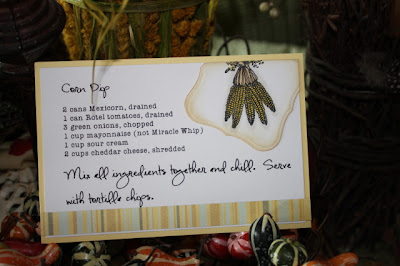 Corn Dip
2 cans Mexicorn, drained
1 can Rotel tomatoes, drained
3 green onions, chopped
1 cup mayonnaise (not Miracle Whip)
1 cup sour cream
2 cups cheddar cheese, shredded
Mix all ingredients together and chill. Serve
with tortilla chips.